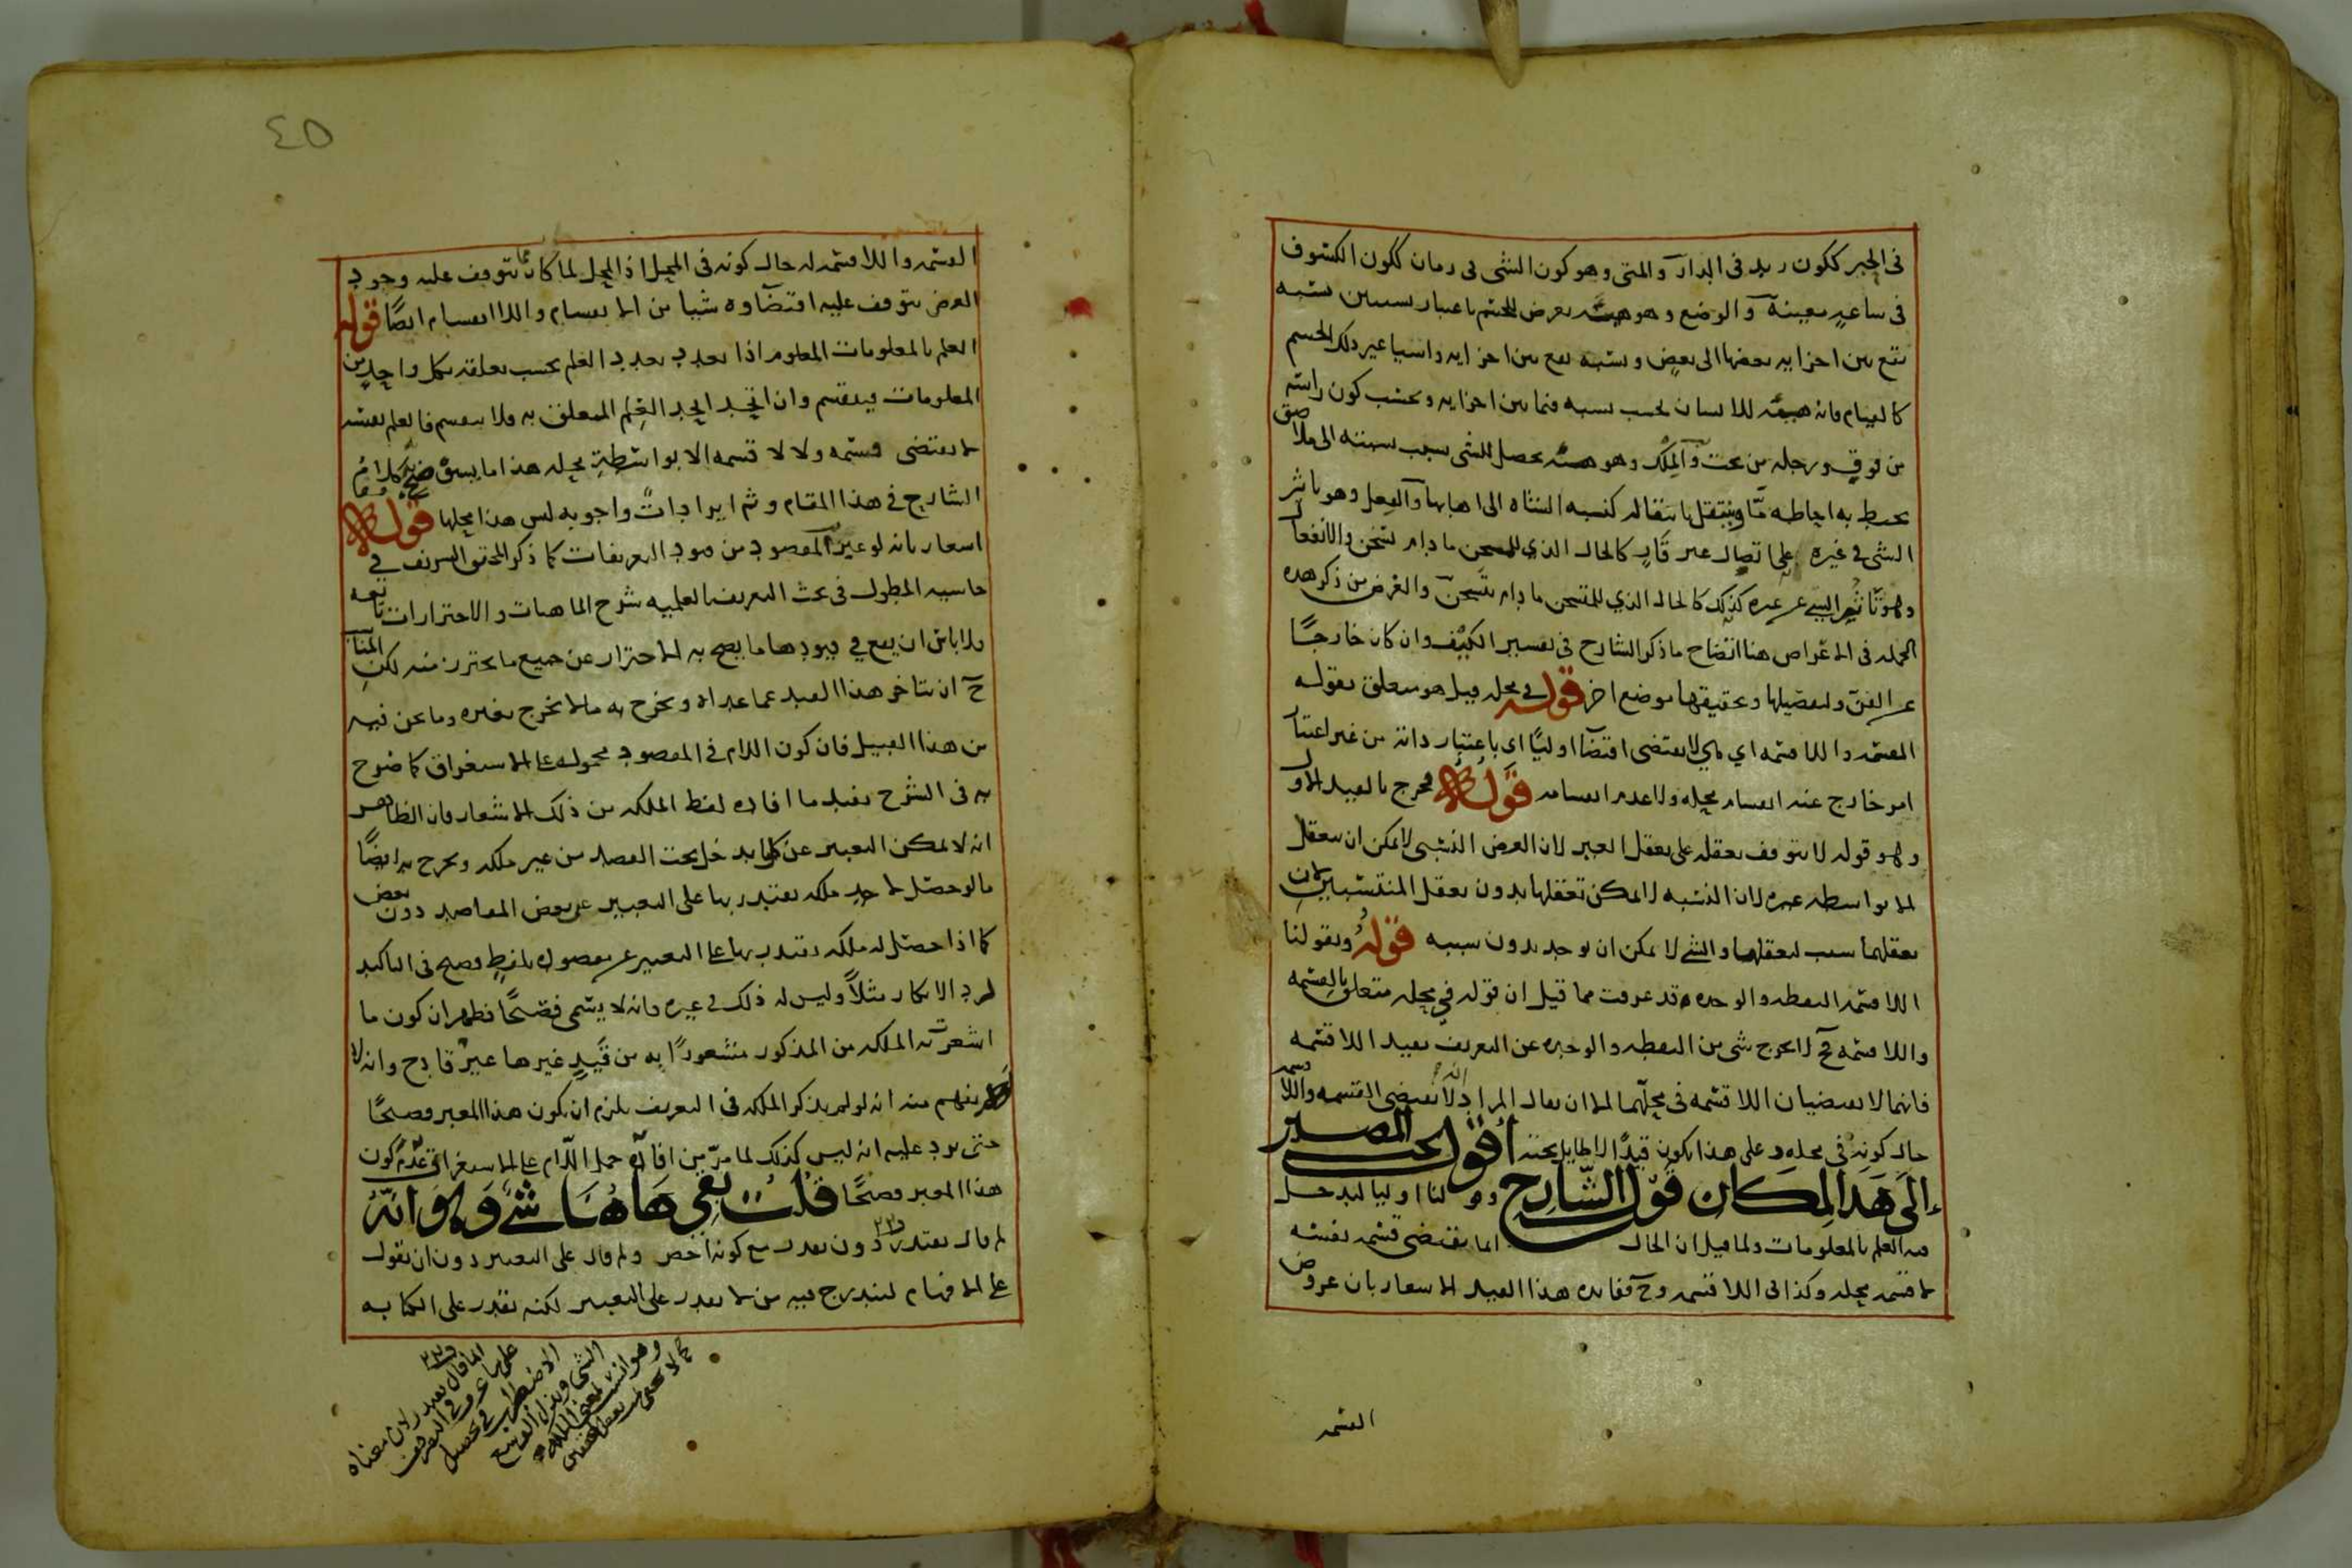 في الحيز ككون زيد في الدار والمتى وهو كون الشي في زمان ككون الكسوف
في ساعة معينة والوضع وهو هيئة تعرض للجسم باعتبار نسبتين نسبة
تقع بين اجزايه بعضها الى بعض ونسبة تقع بين اجزايه واشيا غير ذلك الجسم
كالقيام فانه هيئة للانسان بحسب نسبة فيما بين اجزايه وبحسب كون راسه
من فوق ورجله من تحت والملك وهو هيئة تحصل للشي بسبب نسبته الى ملاصق
يحيط به احاطة ما وينتقل بانتقاله كنسبة الشاة الى اهابها والفعل وهو تاثير
الشي في غيره على اتصال غير قار كالحال الذي للمسخن ما دام يسخن والانفعال
وهو تاثر الشي عن غيره كذلك كالحال الذي للمتسخن ما دام يتسخن والغرض من ذكر هذه
الجملة في الاعراض هنا اتضاح ما ذكر الشارح في تفسير الكيف وان كان خارجًا
عن الفن ولتفصيلها وتحقيقها موضع اخر قوله في محله قيل هو متعلق بقوله
القسمة واللاقسمة اي لا يقتضى اقتضاء اوليًا اي باعتبار ذاته من غير اعتبار
امر خارج عنه انقسام محله ولا عدم انقسامه قوله فخرج بالقيد الاول
وهو قوله لا يتوقف تعقله على تعقل الغير لان العرض النسبي لا يمكن ان يتعقل
الا بواسطة غيره لان النسبة لا يمكن تعقلها بدون تعقل المنتسبين لان
تعقلهما سبب لتعقلها والشي لا يمكن ان يوجد بدون سببه قوله وبقولنا
اللاقسمة النقطة والوحدة قد عرفت مما قيل ان قوله في محله متعلق بالقسمة
واللاقسمة فح لا يخرج شي من النقطة والوحدة عن التعريف بقيد اللاقسمة
فانهما لا يقتضيان اللاقسمة في محلهما الا ان يقال المراد انه لا يقتضى القسمة واللاقسمة
حال كونه في محله وعلى هذا يكون قيدًا لا طايل تحته اقول بحث المصدر
الى هذا المكان قول الشارح وقولنا اوليا ليدخل
فيه العلم بالمعلومات ولما قيل ان الحال انما يقتضى قسمة نفسه
لا قسمة محله وكذا في اللاقسمة وح ففايدة هذا القيد الاشعار بان عروض
القسمة
٤٥
القسمة واللاقسمة له حال كونه في المحل اذ المحل لما كان مما يتوقف عليه وجود
العرض يتوقف عليه اقتضاوه شيا من الانقسام واللاانقسام ايضًا قوله
العلم بالمعلومات المعلوم اذا تعدد تعدد العلم بحسب تعلقه بكل واحد من
المعلومات فينقسم وان اتحد اتحد العلم المتعلق به فلا ينقسم فالعلم بنفسه
لا يقتضى قسمة ولا لا قسمة الا بواسطة محله هذا ما يسنح كلام
الشارح في هذا المقام وثم ايرادات واجوبة ليس هذا محلها قوله
اشعار بانه لو عبر المقصود من قيود التعريفات كما ذكر المحقق الشريف في
حاشية المطول في بحث التعريف العلمية شرح الماهيات والاحترازات تابعه
ولا باس ان يقع في قيودها ما يصح به الاحتراز عن جميع ما يحترز منه لكن المناسب
ح ان يتاخر هذا القيد عما عداه ويخرج به ما لا يخرج بغيره وما نحن فيه
من هذا القبيل فان كون اللام في المقصود محمولة على الاستغراق كما صرح
به في الشرح يفيد ما افاده لفظ الملكة من ذلك الاشعار فان الظاهر
انه لا يمكن التعبير عن كل ما يدخل تحت القصد من غير ملكة ويخرج به ايضًا
ما لو حصل لاحد ملكة يقتدر بها على التعبير عن بعض المقاصد دون بعض
كما اذا حصل له ملكة يقتدر بها على التعبير عن مقصوده بلفظ فصيح في التاكيد
لرد الانكار مثلاً وليس له ذلك في غيره فانه لا يسمى فصيحًا فظهر ان كون ما
اشعرت به الملكة من المذكور مشعورًا به من قيد غيرها غير قادح وانه لا
يفهم منه انه لو لم يذكر الملكة في التعريف يلزم ان يكون هذا المعبر فصيحًا
حتى يرد عليه انه ليس كذلك لما مر من افادة حمل اللام على الاستغراق عدم كون
هذا المعبر فصيحًا قلت بقي هاهنا شي وهو انه
لم قال يقتدر دون يقدر مع كونه اخص ولم قال على التعبير دون ان يقول
على الافهام ليندرج فيه من لا يقدر على التعبير لكنه يقدر على الكتابة
انما قال يقتدر لان معناه
على ما عرف في التصريف
الاضطراب في تحصيل
الشي
وهو انسب لمعنى الملكة